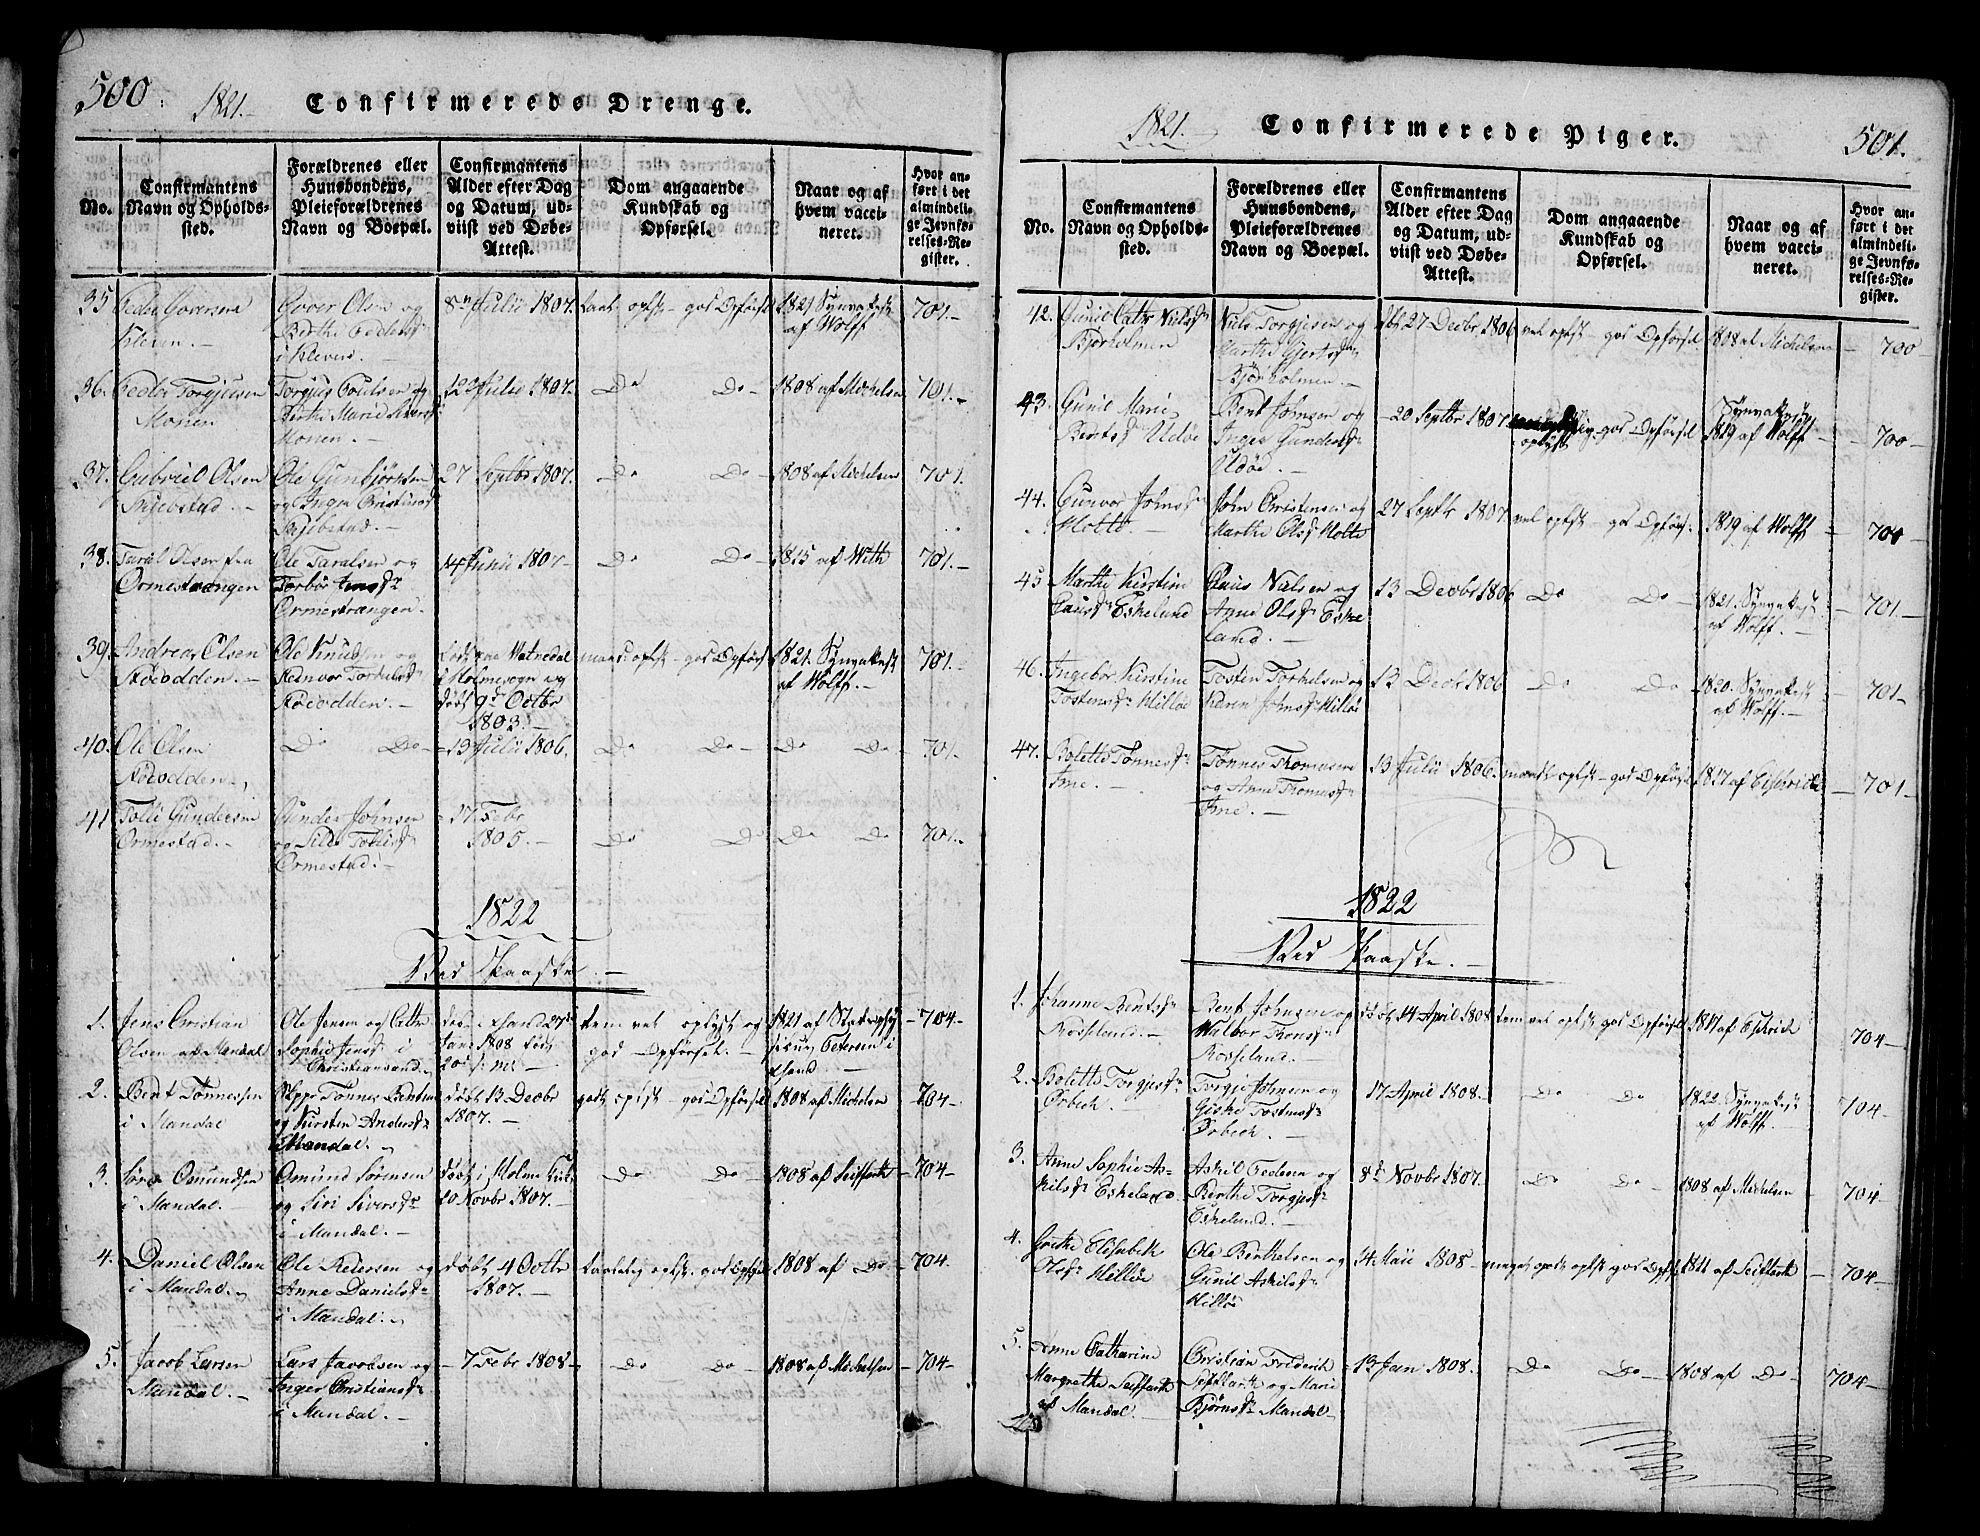 500. 1821.- Confirmerede Drenge.
No.
Confirmantens
Navn og Opholds-
sted.
Forældrenes eller
Huusbondens,
Pleieforældrenes
Navn og Boepæl.
Confirmantens
Alder efter Dag
og Datum, ud-
viist ved Døbe-
Attest.
Dom angaaende
Kundskab og
Opførsel.
Naar og af
hvem vacci-
neret.
Hvor an-
ført i det
almindeli-
ge Jevnfø-
relses-Re-
gister.
35 Peder Goversen
Kleven.-
Gover Olsen og
Berthe Peders
i Kleven.-
8de Julii 1807.
god Opførsel
1821
af Wolff
701.-
36. Peder Torgjusen
Monen
Berthe Marie
Monen.-
12 Julii 1807.
Do Do-
1808 af Michelsen
701.-
37. Gabriel Olsen
Skjebstad.-
Ole Gunbjørnsen
og Inger
Skjebstad.-
27 Septbr 1807.
Do Do-
1808 af Michelsen
701.
38. Taral Olsen fra
Ormestrangen
Ole Taralsen og
Torbør
Ormestrangen.
14 Junii 1807-
Do Do-
1815 af With
701.-
39. Andreas Olsen
Røeodden.-
Ole Knudsen og
Reinvor Torkelsd
Røeodden.-
i Holmesogn og
døbt 9de Octbr
1803.-
god Opførs
1821.
af Wolff.-
701.-
40. Ole Olsen
Røeodden
Do Do-
13 Julii 1806.
Do Do-
Do Do-
701-
41 Tolle Gundersen
Ormestad.-
Gunder Johnsen
og Sille Tollisd
Ormestad.-
17 Febr
1805.-
Do Do
Do Do
701.-
1822
Ved Paaske.-
1. Jens Christian
Olsen af Mandal
Ole Jensen og
Sophie Jensd i
Christiansand
1808
vel oplyst og
god Opførsel.-
1821 af
Petersen i
-704-
2. Bent Tønnesen
i Mandal
Skipr Tønnes
og Kirsten Andersd
i Mandal.-
døbt 13 Decbr
1807.-
god Opførsel
1808 af Michelsen
704-
3. Søren Osmundsen
i Mandal.-
Osmund Sørensen
og Siri Siversd
i Mandal.-
døbt i Holme
20 Novbr 1807.-
Do Do-
1808 af Seiffarth
-704-
4. Daniel Olsen
i Mandal.
Ole Pedersen og
Anne Danielsd
i Mandal.-
døbt 4 Octbr
1807.-
1808 af Do-
704-
5. Jacob Larsen
Mandal.-
Lars Jacobsen og
Inger Christiansd
i Mandal.-
-7 Febr 1808-
Do Do-
1808 af Michelsen
-704-
1821.- Confirmerede Piger. 501.
No.
Confirmantens
Navn og Opholds-
sted.
Forældrenes eller
Huusbondens,
Pleieforældrenes
Navn og Boepæl.
Confirmantens
Alder efter Dag
og Datum, ud-
viist ved Døbe-
Attest.
Dom angaaende
Kundskab og
Opførsel.
Naar og af
hvem vacci-
neret.
Hvor an-
ført i det
almindeli-
ge Jevnfø-
relses-Re-
gister.
42. Gunil Cathr Nielsd
Bjørholmen
Niels Torgjusen og
Marthe Gjertsd
Bjørholmen.-
døbt 27 Decbr 1806
vel oplyst - god Opførsel
1808 af Michelsen
- 700-
43. Gunil Marie
Bentsd Udøe
Bent Johnsen og
Inger Gundersd
Udøe.-
20 Septbr 1807
god Opførsel
1819 af Wolff
- 700-
44. Gunvor Johnsd
Holte.-
John Christensen og
Marthe Olsd Holte
27 Septbr 1807
vel oplyst - god Opførs.
1819 af Wolff
- 700
45 Marthe Kirstine
Clausd Eskelund
Claus Nielsen og
Anne Olsd Eske-
land.-
13 Decbr 1806
Do Do-
1821.
af Wolff.-
- 701-
46. Ingebor Kirstine
Tostensd Hilløe
Tosten Torkelsen og
Karen Johnsd Hilløe
13 Decbr 1806
Do Do-
1820.
af Wolff.-
- 701-
47. Bolette Tønnesd
Ime.-
Tønnes Thomesen
og Anne Thomesd
Ime.-
13 Julii 1806.
god Opførsel
1817 af Eschrich
- 701-
1822
Ved Paaske.-
1. Johanne Bentsd
Rosseland.-
Bent Johnsen og
Walbor
Rosseland.-
døbt 14 April 1808
vel oplyst god Opførsel
1817 af Eschrich
704-
2. Bolette Torgjesd
Orbech.-
Torgje Johnsen og
Giske Tostensd
Orbech.-
17 April 1808.-
Do Do-
1822.
af Wolff.-
704-
3. Anne Sophie As-
kilsd Eskeland
Askil Pedersen og
Berthe Torgjesd
Eskelund.-
8de Novbr 1807.-
Do Do-
1808 af Michelsen
704-
4. Grethe Elisabeth
Olsd Hilløe
Ole Berthelsen og
Gunil Askilsd
Hilløe
14 Maii 1808-
god Opførs
1811 af Seiffarth
- 704-
5. Anne Catharine
Margrethe Seiffarth
af Mandal.-
Christian Frederik
Seiffarth og Marie
Bjørnsd Mandal-
13 Jan 1808.-
Do Do-
1808 af Do-
704-